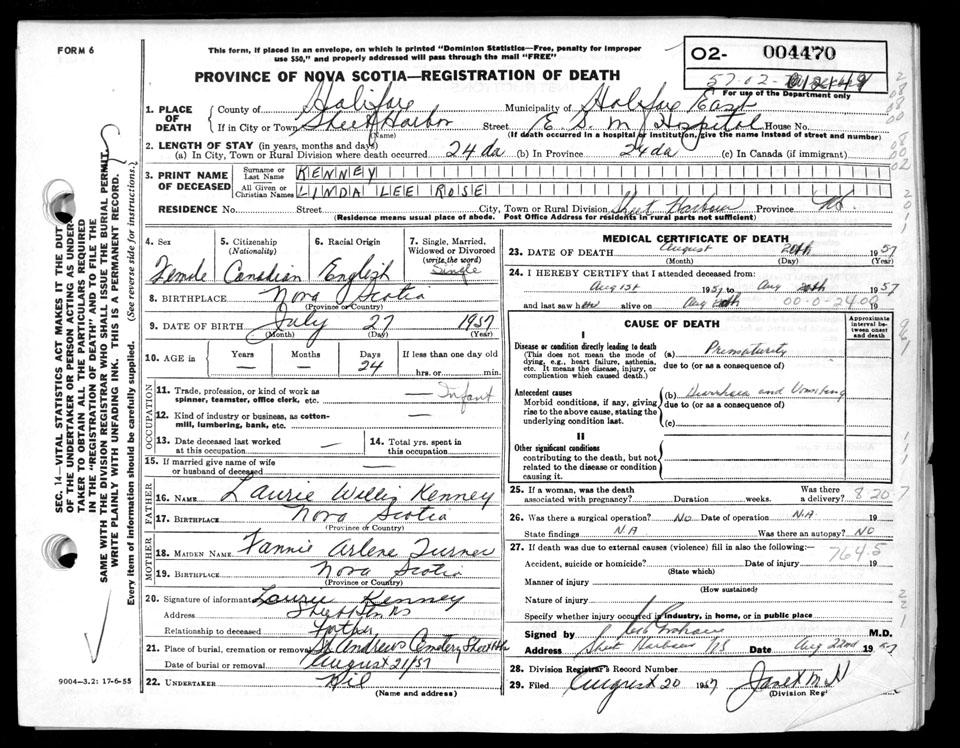 FORM 6
This form, if placed in an envelope, on which is printed "Dominion Statistics—Free, penalty for improper
use $50," and properly addressed will pass through the mail "FREE"
PROVINCE OF NOVA SCOTIA—REGISTRATION OF DEATH
02- 004470
57-02-
For use of the Department only
1. PLACE OF DEATH
County of Halifax Municipality of Halifax East
If in City or Town Sheet Harbor Street E. S. M. Hospital House No.
(Name) (If death occurred in a hospital or institution, give the name instead of street and number)
2. LENGTH OF STAY (in years, months and days)
(a) In City, Town or Rural Division where death occurred 24 da (b) In Province 24 da (c) In Canada (if immigrant)
3. PRINT NAME OF DECEASED
Surname or Last Name KENNEY
All Given or Christian Names LINDA LEE ROSE
RESIDENCE No. Street City, Town or Rural Division Sheet Harbour Province N.S.
(Residence means usual place of abode. Post Office Address for residents in rural parts not sufficient)
4. Sex Female
5. Citizenship (Nationality) Canadian
6. Racial Origin English
7. Single, Married, Widowed or Divorced (write the word) Single
8. BIRTHPLACE Nova Scotia
(Province or Country)
9. DATE OF BIRTH July 27 1957
(Month) (Day) (Year)
10. AGE in Years — Months — Days 24 If less than one day old hrs. or min.
OCCUPATION
11. Trade, profession, or kind of work as spinner, teamster, office clerk, etc. — Infant
12. Kind of industry or business, as cotton-mill, lumbering, bank, etc. —
13. Date deceased last worked at this occupation —
14. Total yrs. spent in this occupation
15. If married give name of wife or husband of deceased —
FATHER
16. NAME Laurie Willis Kenney
17. BIRTHPLACE Nova Scotia
(Province or Country)
MOTHER
18. MAIDEN NAME Fannie Arlene Turner
19. BIRTHPLACE Nova Scotia
(Province or Country)
20. Signature of informant Laurie Kenney
Address Sheet Hbr NS
Relationship to deceased Father
21. Place of burial, cremation or removal St. Andrews Cemetery Sheet Hbr
Date of burial or removal August 21/57
22. UNDERTAKER Nil
(Name and address)
9004—3.2: 17-6-55
MEDICAL CERTIFICATE OF DEATH
23. DATE OF DEATH August 20th 1957
(Month) (Day) (Year)
24. I HEREBY CERTIFY that I attended deceased from:
Aug 1st 1957 to Aug 20th 1957
and last saw her alive on Aug 20th 00-0-24-00
CAUSE OF DEATH
Approximate interval between onset and death
I
Disease or condition directly leading to death
(This does not mean the mode of dying, e.g., heart failure, asthenia, etc. It means the disease, injury, or complication which caused death.)
(a) Prematurity
due to (or as a consequence of)
Antecedent causes
Morbid conditions, if any, giving rise to the above cause, stating the underlying condition last.
(b) Diarrhoea and Vomiting
due to (or as a consequence of)
(c)
II
Other significant conditions
contributing to the death, but not related to the disease or condition causing it.
25. If a woman, was the death associated with pregnancy? Duration weeks. Was there a delivery?
8-20-7
26. Was there a surgical operation? NO Date of operation N.A. 19
State findings N.A Was there an autopsy? NO
27. If death was due to external causes (violence) fill in also the following:—
764.5
Accident, suicide or homicide? Date of injury 19
(State which)
Manner of injury
(How sustained)
Nature of injury
Specify whether injury occurred in industry, in home, or in public place
Signed by M.D.
Address Sheet Harbour NS Date Aug 22nd 1957
28. Division Registrar's Record Number
29. Filed August 20 1957 Janet M.
(Division Reg
SEC. 14—VITAL STATISTICS ACT MAKES IT THE DUTY
OF THE UNDERTAKER OR PERSON ACTING AS UNDER-
TAKER TO OBTAIN ALL THE PARTICULARS REQUIRED
IN THE "REGISTRATION OF DEATH" AND TO FILE THE
SAME WITH THE DIVISION REGISTRAR WHO SHALL ISSUE THE BURIAL PERMIT.
WRITE PLAINLY WITH UNFADING INK. THIS IS A PERMANENT RECORD.
Every item of information should be carefully supplied. (See reverse side for instructions.)